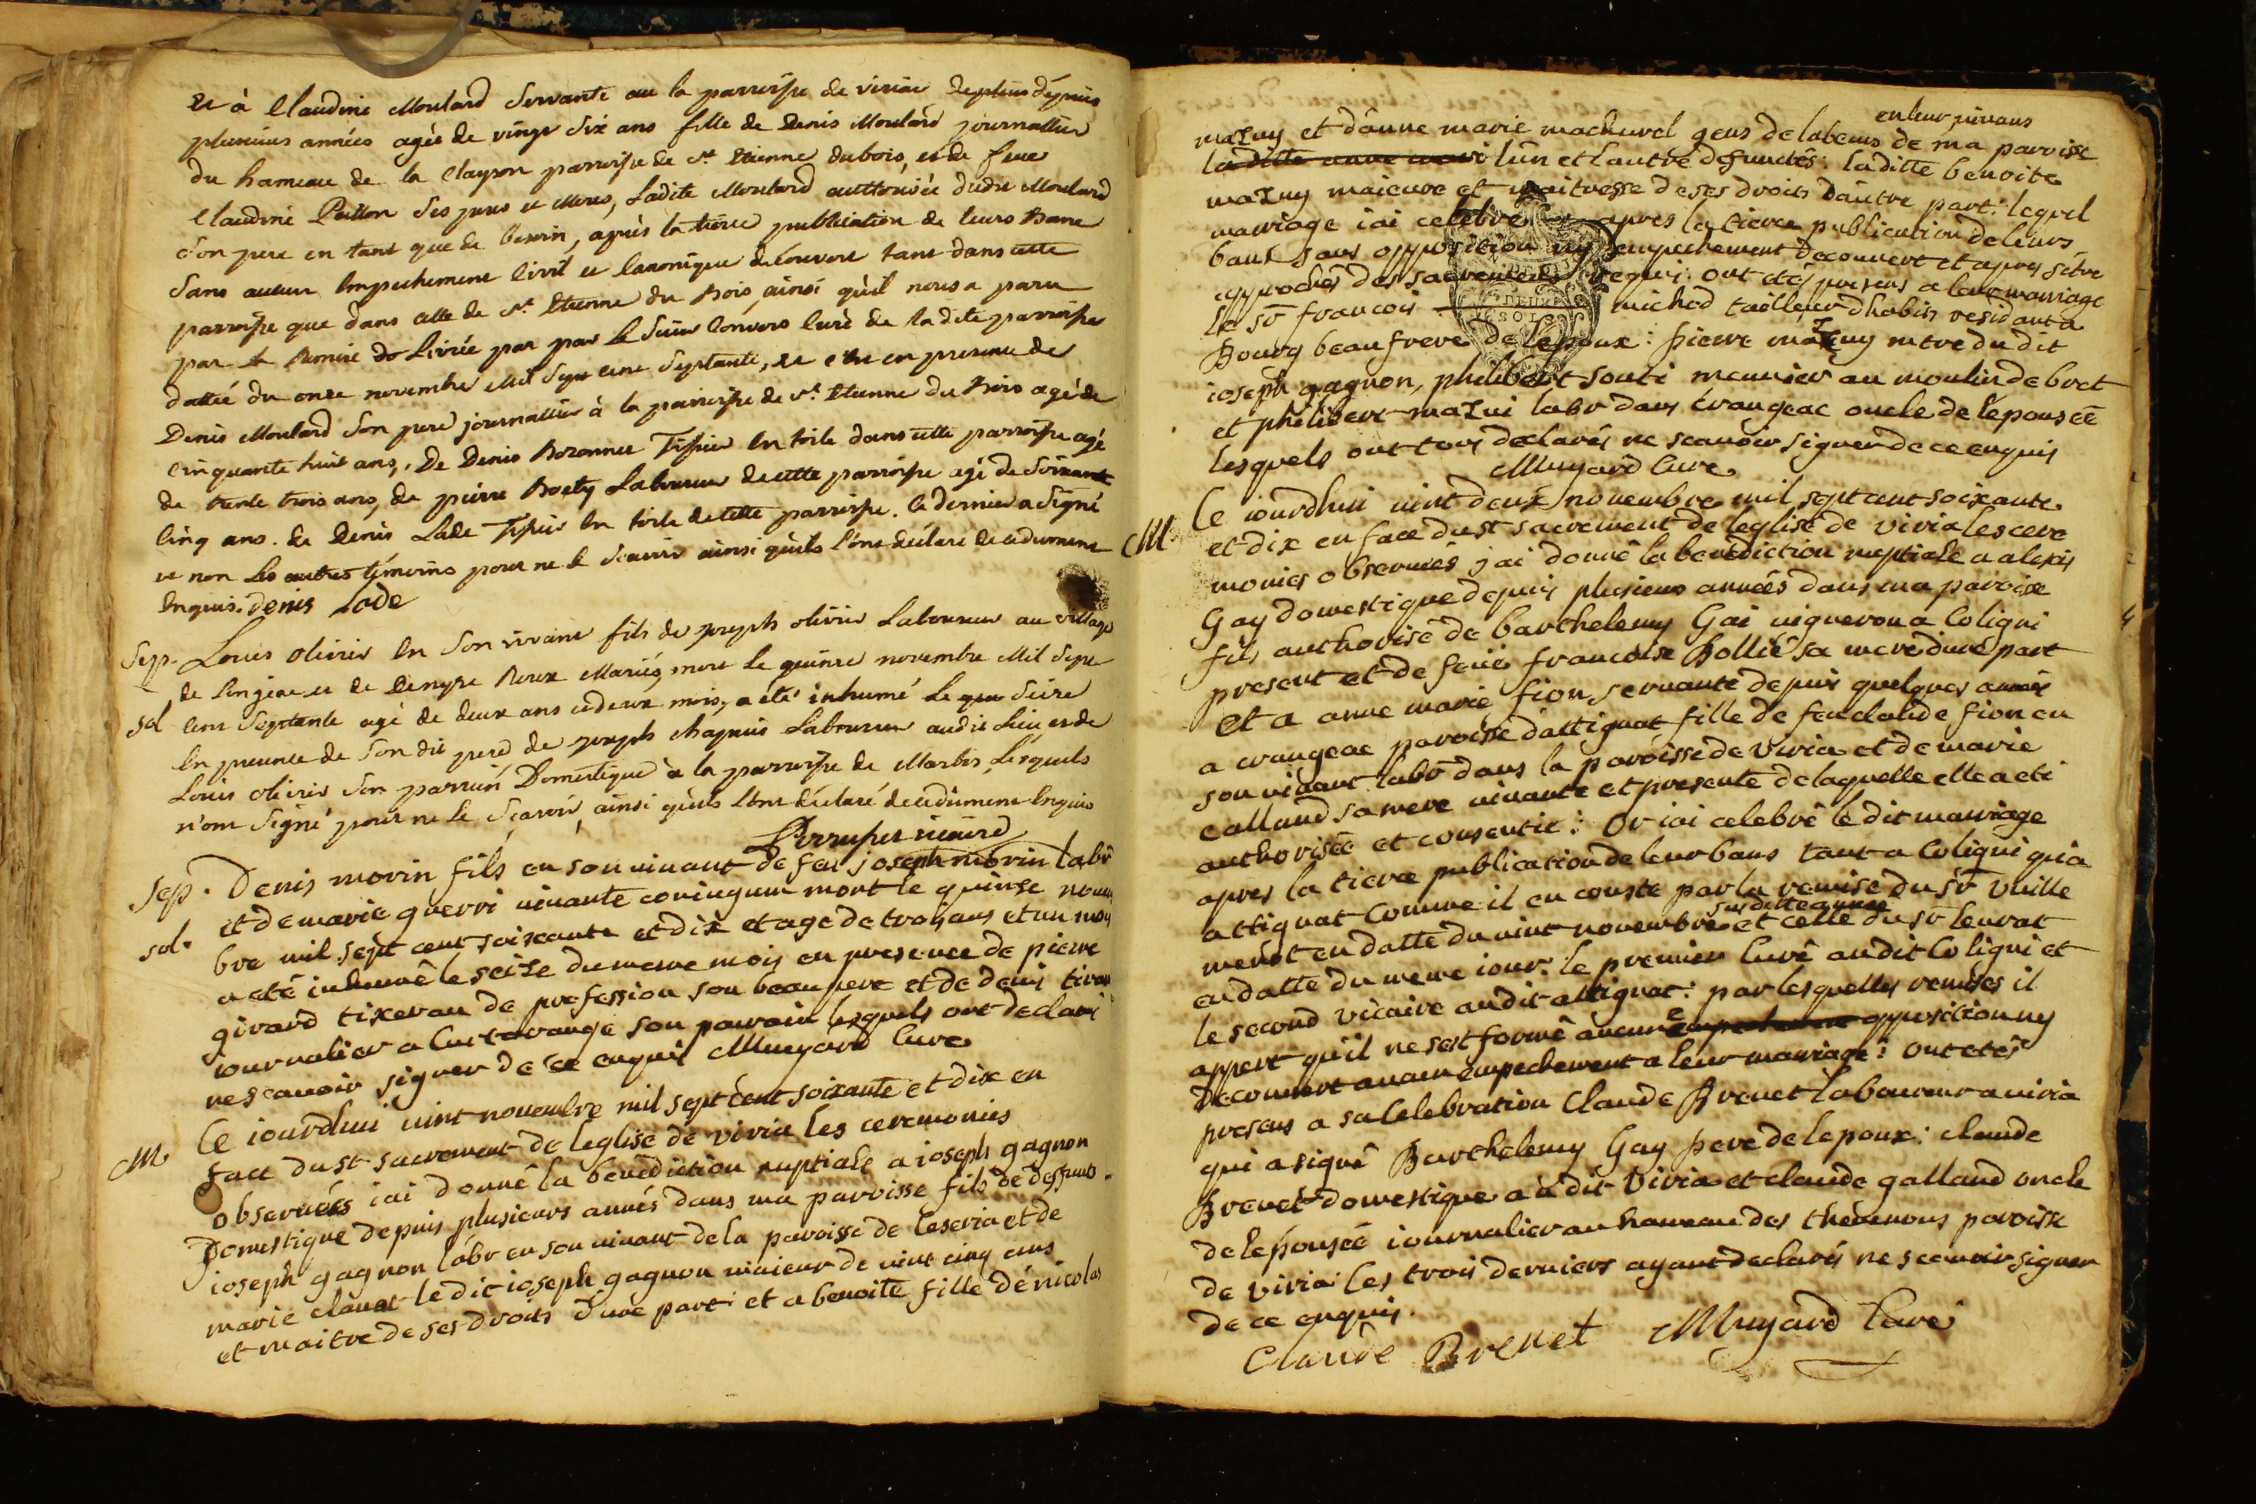 et à Claudine Moulard Servante en la parroisse de viriac depuis
plusieurs années agée de vingt Six ans fille de Denis Moulard journallier
du hameau de la Clayson parroisse de St. Etienne dubois, et de feue
Claudine Paillon Ses peres et Meres, Ladite Moulard authorisée dudit Moulard
son pere en tant que de besoin, après la tierce publication de leurs Bans
Sans aucun Empechement Civil et Canonique découvert tant dans cette
parroisse que dans celle de St. Etienne du Bois, ainsi qu'il nous a paru
par la Remise de Livrée par par le Sieur Convers Curé de ladite parroisse
dattée du onze novembre Mil Sept cent Septante, et c'en en presence de
Denis Moulard Son pere journallier à la parroisse de St. Etienne du Bois agé de
cinquante huit ans, De Denis Bozonnet Tissier En toile dans cette parroisse agé
de trente trois ans, de pierre Boety Laboureur de cette parroisse agé de Soixante
Cinq ans. de Denis Lade Tissier En toile de cette parroisse. Ce dernier a Signé
et non les autres témoins pour ne le Scavoir ainsi qu'ils l'ont déclaré de ce dument
Enquis. Denis Lade
Sep. Louis Olivier En Son vivant fils de joseph olivier Laboureur au village
de Cengeac et de Denyse Roux Mariés, mort le quinze novembre Mil Sept
Sol cent Septante agé de deux ans et deux mois, a été inhumé le Seize
En presence de Son dit pere de joseph chapuis Laboureur audit Lieu et de
Louis olivier Son parrain Domestique à la parroisse de Marbos, Lesquels
n'ont Signé pour ne le Scavoir, ainsi qu'ils l'ont déclaré de ce dument Enquis
vicaire
Sep. Denis morin fils en son vivant de feu joseph morin labr
et de marie guerri vivante conicqueur mort le quinse novem
sol. bre mil sept cent soixante et dix et agé de trois ans et un mois
a eté inhumê le seize du meme mois en presence de pierre
girard tixeran de profession son beaupere et de denis tiran
iournalier a Curtarange son parrain lesquels ont declaré
ne scavoir signer de ce enquis Muyard Curé
M Ce iourdhui vint novembre mil sept cent soixante et dix en
face du st sacrement de leglise de viria les ceremonies
observées iai donnê la benediction nuptiale a ioseph gagnon
Domestique depuis plusieurs annés dans ma paroisse fils de deffunts
ioseph gagnon labr en son vivant de la paroisse de Ceseria et de
marie clauat le dit ioseph gagnon maieur de vint cinq ans
et maitre de ses droits d'une part: et a benoite fille de nicolas
en leur vivans
mazuy et d'anne marie machurel gens de labeurs de ma paroisse
ladite anne marie lun et lautre deffuncts: ladite benoite
mazuy maieure et maitresse de ses droits d'autre part: lequel
mariage iai celebrê apres la tierce publication de leurs
bans sans opposition ny empechement decouvert et apres sêtre
approchés des sacremens requis: ont etés presens a leur mariage
le sr francois michod tailleur dhabits residant a
Bourg beaufrere de lepoux: pierre mazuy mtre du dit
ioseph gagnon, philibert souti meunier au moulin de bret
et philibert mazui labr dans Crangeac oncle de lepousée
lesquels ont tous declarés ne scavoir signer de ce enquis
Muyard Curé
M Ce iourdhui vint deux novembre mil sept cent soixante
et dix en face du st sacrement de leglise de viria les cere
monies observées j'ai donnê la benediction nuptiale a alexis
Gay domestique depuis plusieurs années dans ma paroisse
fils authorisé de barthelemy Gai vigneron a Coligni
present et de feüe francoise Bollié sa mere d'une part
et a anne marie fion servante depuis quelques années
a crangeac paroisse d'attignat fille de feu claude fion en
son vivant labr dans la paroisse de viria et de marie
calland sa mere vivante et presente de laquelle elle a eté
authorisée et consentie: Or iai celebrê le dit mariage
apres la tierce publication de leur bans tant a Coligni qu'a
attignat comme il en conste par la remise du sr vuille
susditte année
menot en datte du vint novembre et celle du sr leurat
en datte du meme iour: le premier Curê au dit Coligni et
le second vicaire au dit attignat: par lesquelles remises il
appert qu'il ne sest formê aucune empechement opposition ny
decouvert aucun empechement a leur mariage: ont etés
presens a sa Celebration Claude Brevet laboureur a viria
qui a signê Barthelemy Gay pere de lepoux: claude
Brevet domestique au dit viria et claude galland oncle
de lépousée iournalier au hameau des thevenons paroisse
de viria: les trois derniers ayant declarés ne scavoir signer
de ce enquis.
Claude Brevet Muyard Curé